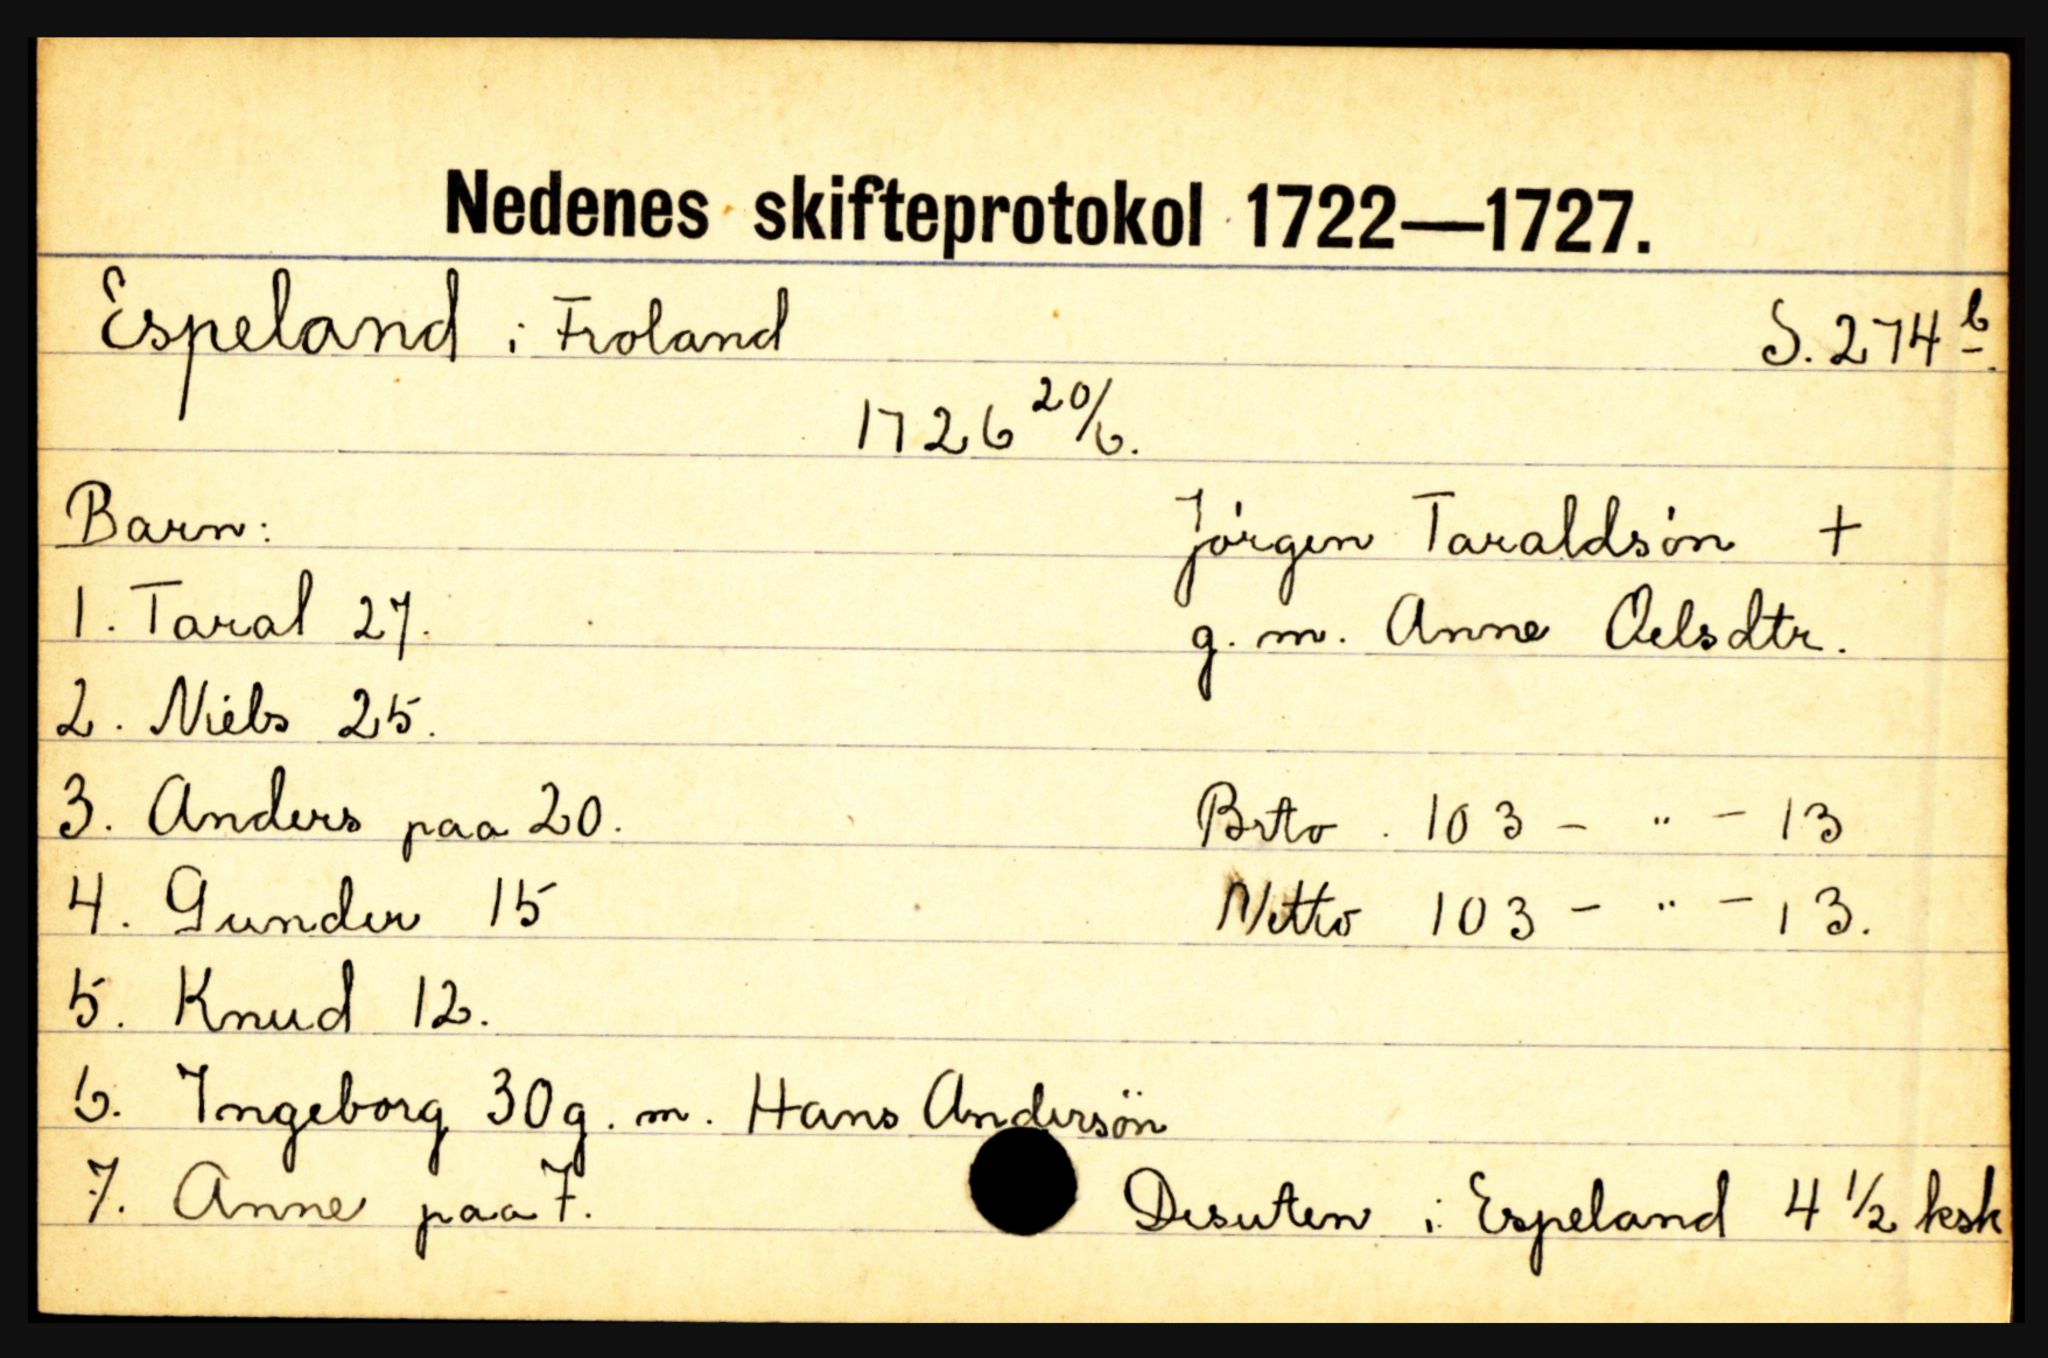 Nedenes skifteprotokol 1722—1727.
Espeland i Froland S. 274 b.
1726 20/6.
Barn: Jörgen Taraldsön +
1. Taral 27. g. m. Anne Oelsdtr.
2. Niels 25.
3. Anders paa 20. Brto. 103 - " - 13
4. Gunder 15 Netto 103 - " - 13.
5. Knud 12.
6. Ingeborg 30 g. m. Hans Andersön
7. Anne paa 7. Desuten i Espeland 4 1/2 ksk